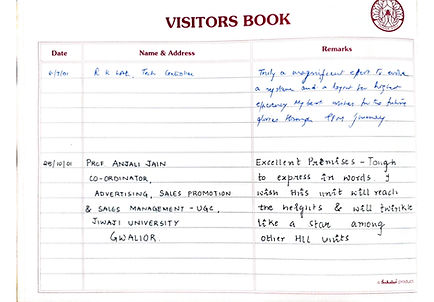 VISITORS BOOK
Date Name & Address Remarks
Truly a magnificent effort to
a system and a layout for higher
efficiency. My best wishes for the future
through
25/10/01 PROF ANJALI JAIN Excellent Premises - Tough
CO-ORDINATOR, to express in words. I
ADVERTISING, SALES PROMOTION wish this unit will reach
& SALES MANAGEMENT - UGC, the heights & will twinkle
JIWAJI UNIVERSITY like a star among
GWALIOR. other HLL units
a product